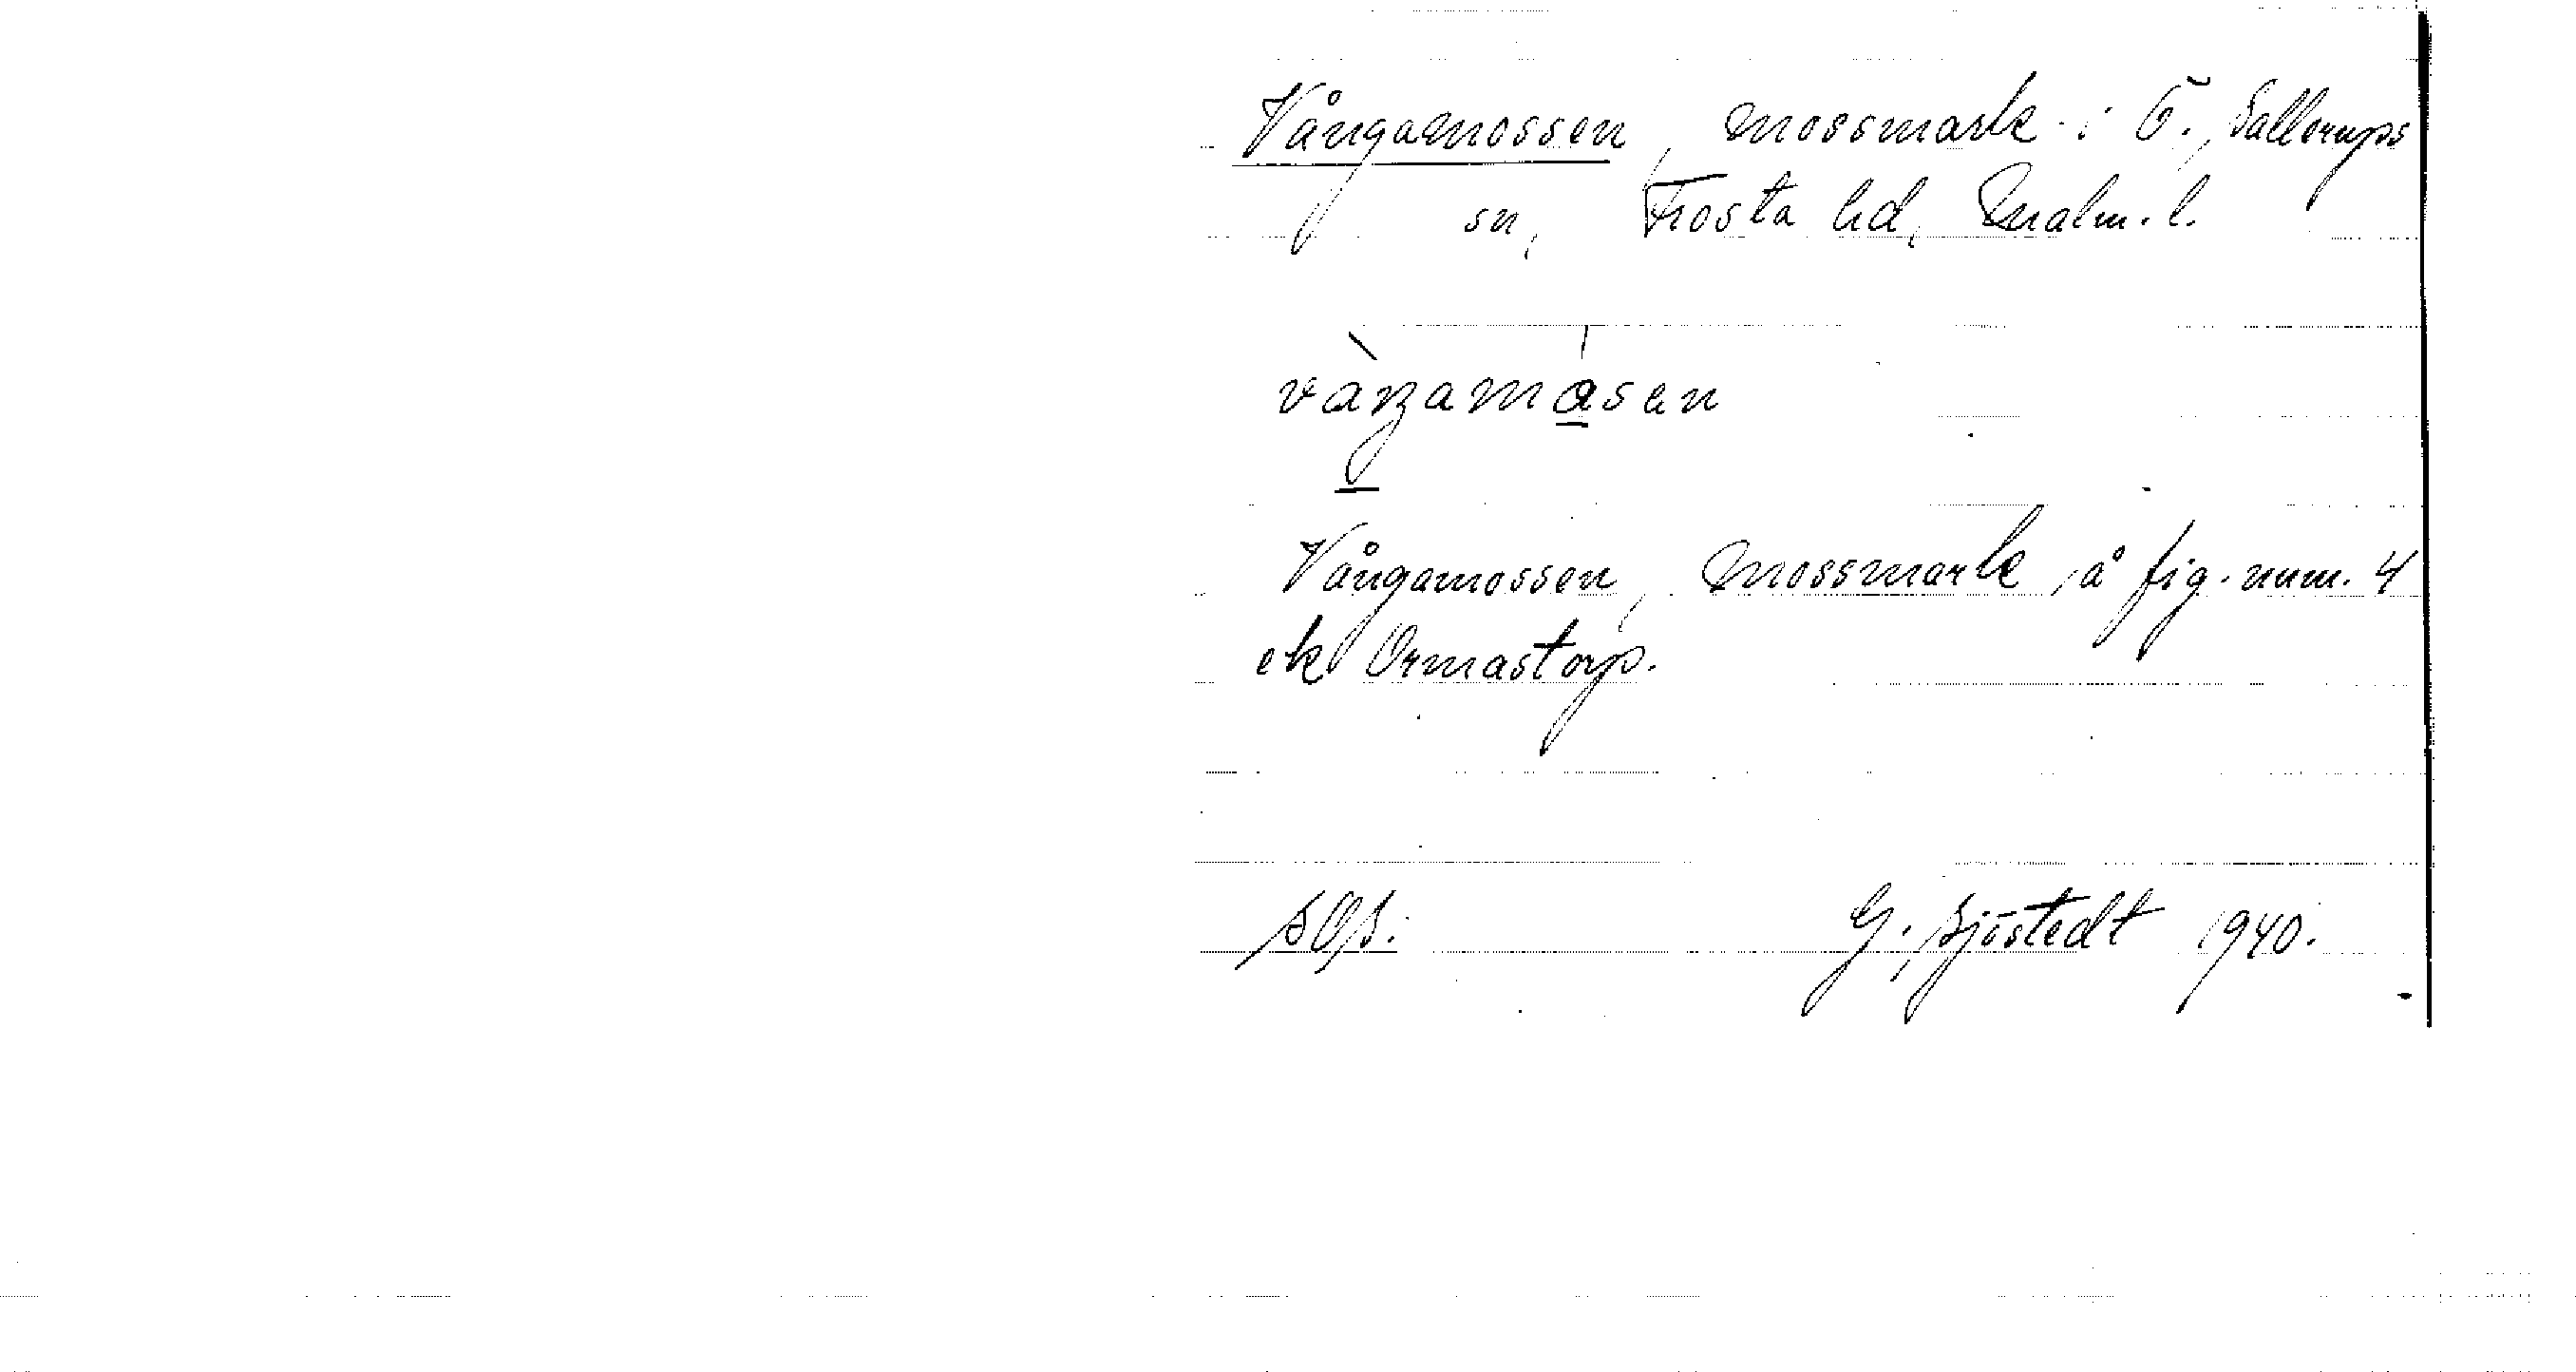 Vångamossen, mossmark i Ö. Sallerups
sn, Frosta hd, Malm. l.
vàŋamåsen
Vångamossen, mossmark, å fig. num. 4
ek Ormastorp.
G. Sjöstedt 1940.